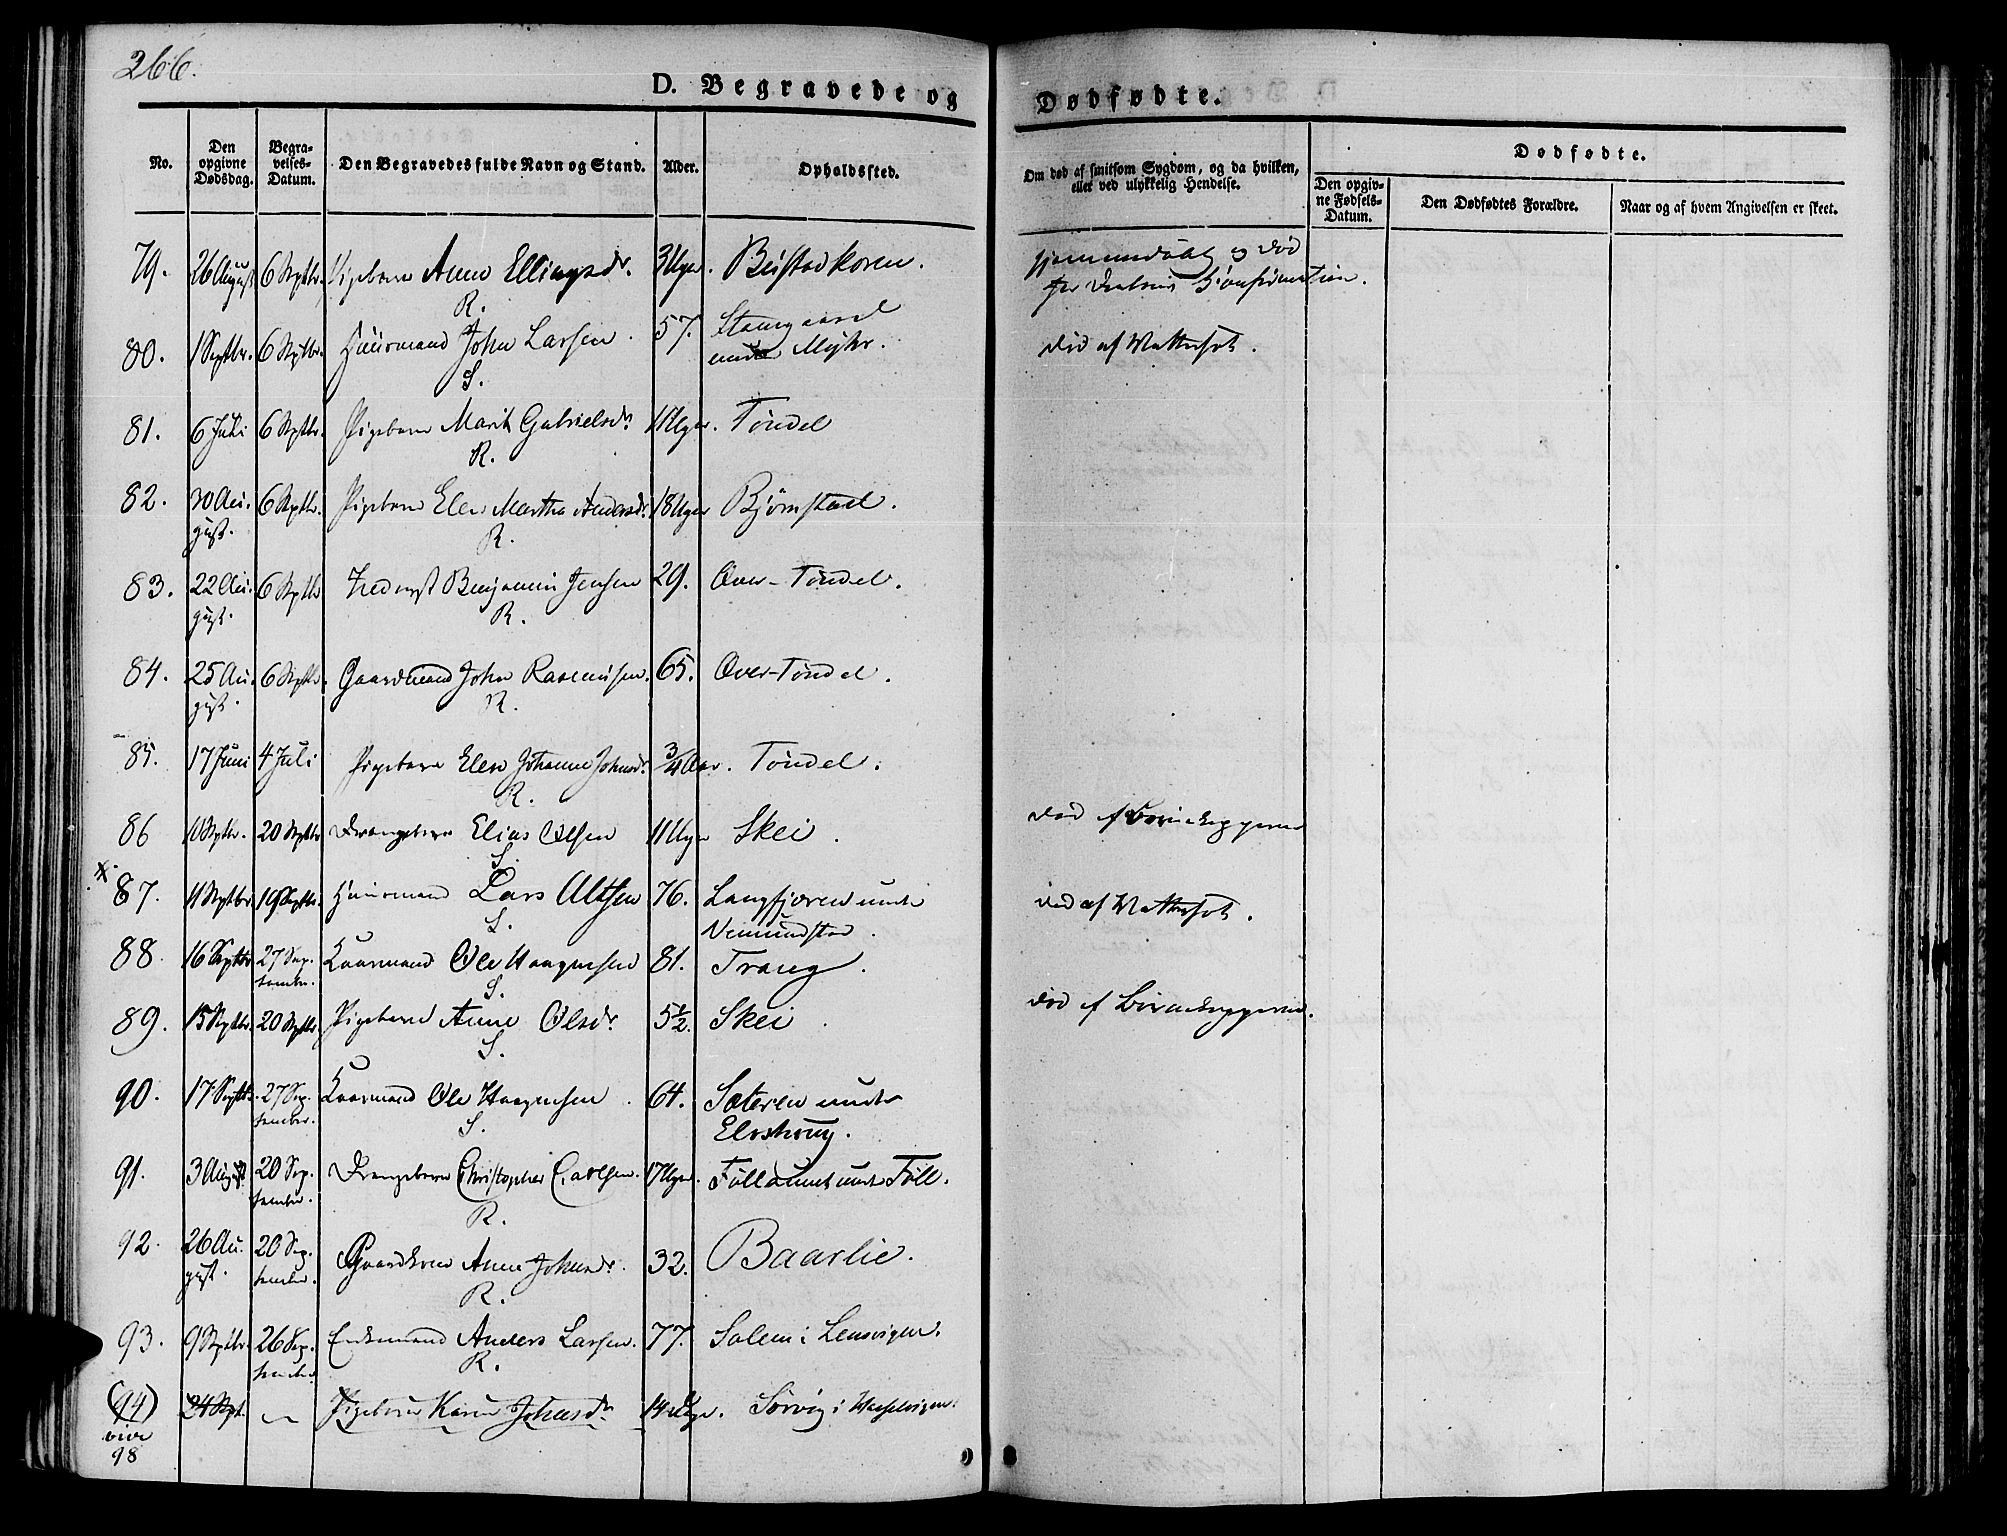 266.
D. Begravede og
Dødfødte.
No.
Den opgivne Dødsdag.
Begravelses-Datum.
Den Begravedes fulde Navn og Stand.
Alder.
Opholdssted.
Om død af smitsom Sygdom, og da hvilken,
eller ved ulykkelig Hendelse.
Dødfødte.
Den opgivne Fødsels-Datum.
Den Dødfødtes Forældre.
Naar og af hvem Angivelsen er skeet.
79. 26 August 6 Septbr. Pigebarn Anne Ellingsdr. 3 Uger. Beistadkoren. hjemmedøbt og død
R. før Daabens
80. 1 Septbr. 6 Septbr. Huusmand John Larsen. 57. Stamgaard
under Myhr. død af Vattersot.
S.
81. 6 Juli 6 Septbr. Pigebarn Marit Gabrielsdr. 11 Uger. Tøndel
R.
82. 30 August. 6 Septbr. Pigebarn Elen Martha Andersdr. 18 Uger Bjørnstad.
R.
83. 22 August. 6 Septbr Benjamin Jensen 29. Over-Tøndel.
R.
84. 25 August. 6 Septbr. Gaardmand John Rasmusen. 65. Over-Tøndel.
R.
85. 17 Juni 4 Juli Pigebarn Elen Johanna Johnsdr. 3/4 Aar. Tøndel.
R.
86 Septbr. 20 Septbr Drengebarn Elias Olsen 11 Uger Skei. død af Børnekopperne
S.
87. 11 Septbr 19 Septbr. Huusmand Lars Olsen 76. Langfjæren under
Vemundstad. død af Vattersot.
S.
88. 16 Septbr 27 September. Kaarmand Ole Haagensen 81. Trang.
S.
89. 15 Septbr. 20 Septbr. Pigebarn Anne Olsdr. 5 1/2. Skei. død af Børnekopperne.
S.
90. 17 Septbr. 27 September. Kaarmand Ole Haagensen. 64. Sæteren under
Elvshoug.
S.
91. 3 August 20 September. Drengebarn Christopher Carlsen. 17 Uger. under Føll.
R.
92. 26 August. 20 September. Gaardkone Anne Johnsdr. 32. Baarlie.
R.
93. 9 Septbr. 26 September Anders Larsen. 77. Salem i Lensvigen.
R.
(94) 24 Sept. — Pigebarn Karen Johnsdr. 14 Uger. Sørvig i
vide
98